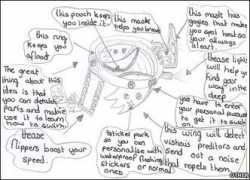 this pouch keeps
you inside it.
this mask
helps you breath
this mask has
goggles that make
you spot heat so
your allways
alert.
this ring
keeps you
afloat
these light
will help u
find your
way in the
deep
The great
thing about this
idea is that
you can detach
parts and make
use it to learn
how to swim.
you have to enter
your personal password
to get it to switch
on.
these
flippers boost your
speed.
sticker park
so you can
personalise with
waterproof flashing
stickers or normal
ones
this wing will detect
vishous preditors and
send out a noise
that repels them